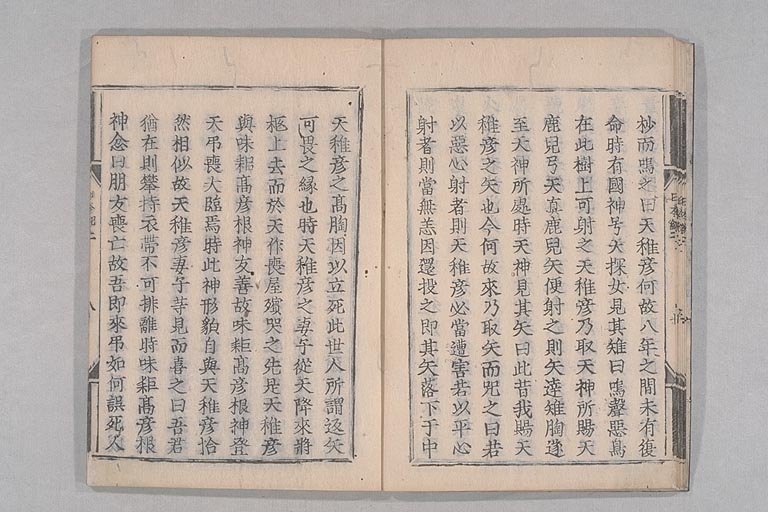 杪而鳴之曰天稚彦何故八年之間未有復
命時有國神号天探女見其雉曰鳴聲惡鳥
在此樹上可射之天稚彦乃取天神所賜天
鹿兒弓天真鹿兒矢便射之則矢達雉胸遂
至天神所處時天神見其矢曰此昔我賜天
稚彦之矢也今何故來乃取矢而咒之曰若
以惡心射者則天稚彦必當遭害若以平心
射者則當無恙因還投之即其矢落下于中
天稚彦之髙胸因以立死此世人所謂返矢
可畏之縁也時天稚彦之妻子從天降來將
柩上去而於天作喪屋殯哭之先是天稚彦
與味耟髙彦根神友善故味耟髙彦根神登
天吊喪大臨焉時此神形貌自與天稚彦恰
然相似故天稚彦妻子等見而喜之曰吾君
猶在則攀持衣帶不可排離時味耟髙彦根
神忿曰朋友喪亡故吾即來吊如何誤死人